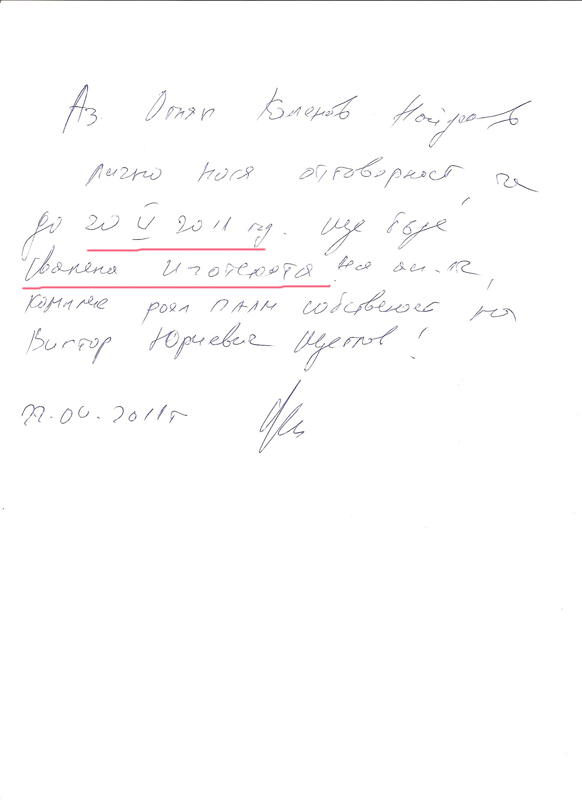 Аз Огнян Каменов
лично нося отговорност, че
до 20 V 2011 год. ще бъде
свалена ипотеката на ап. 12,
комплекс роял палм собственост на
Виктор Юриевич Щеглов!
22.04.2011г